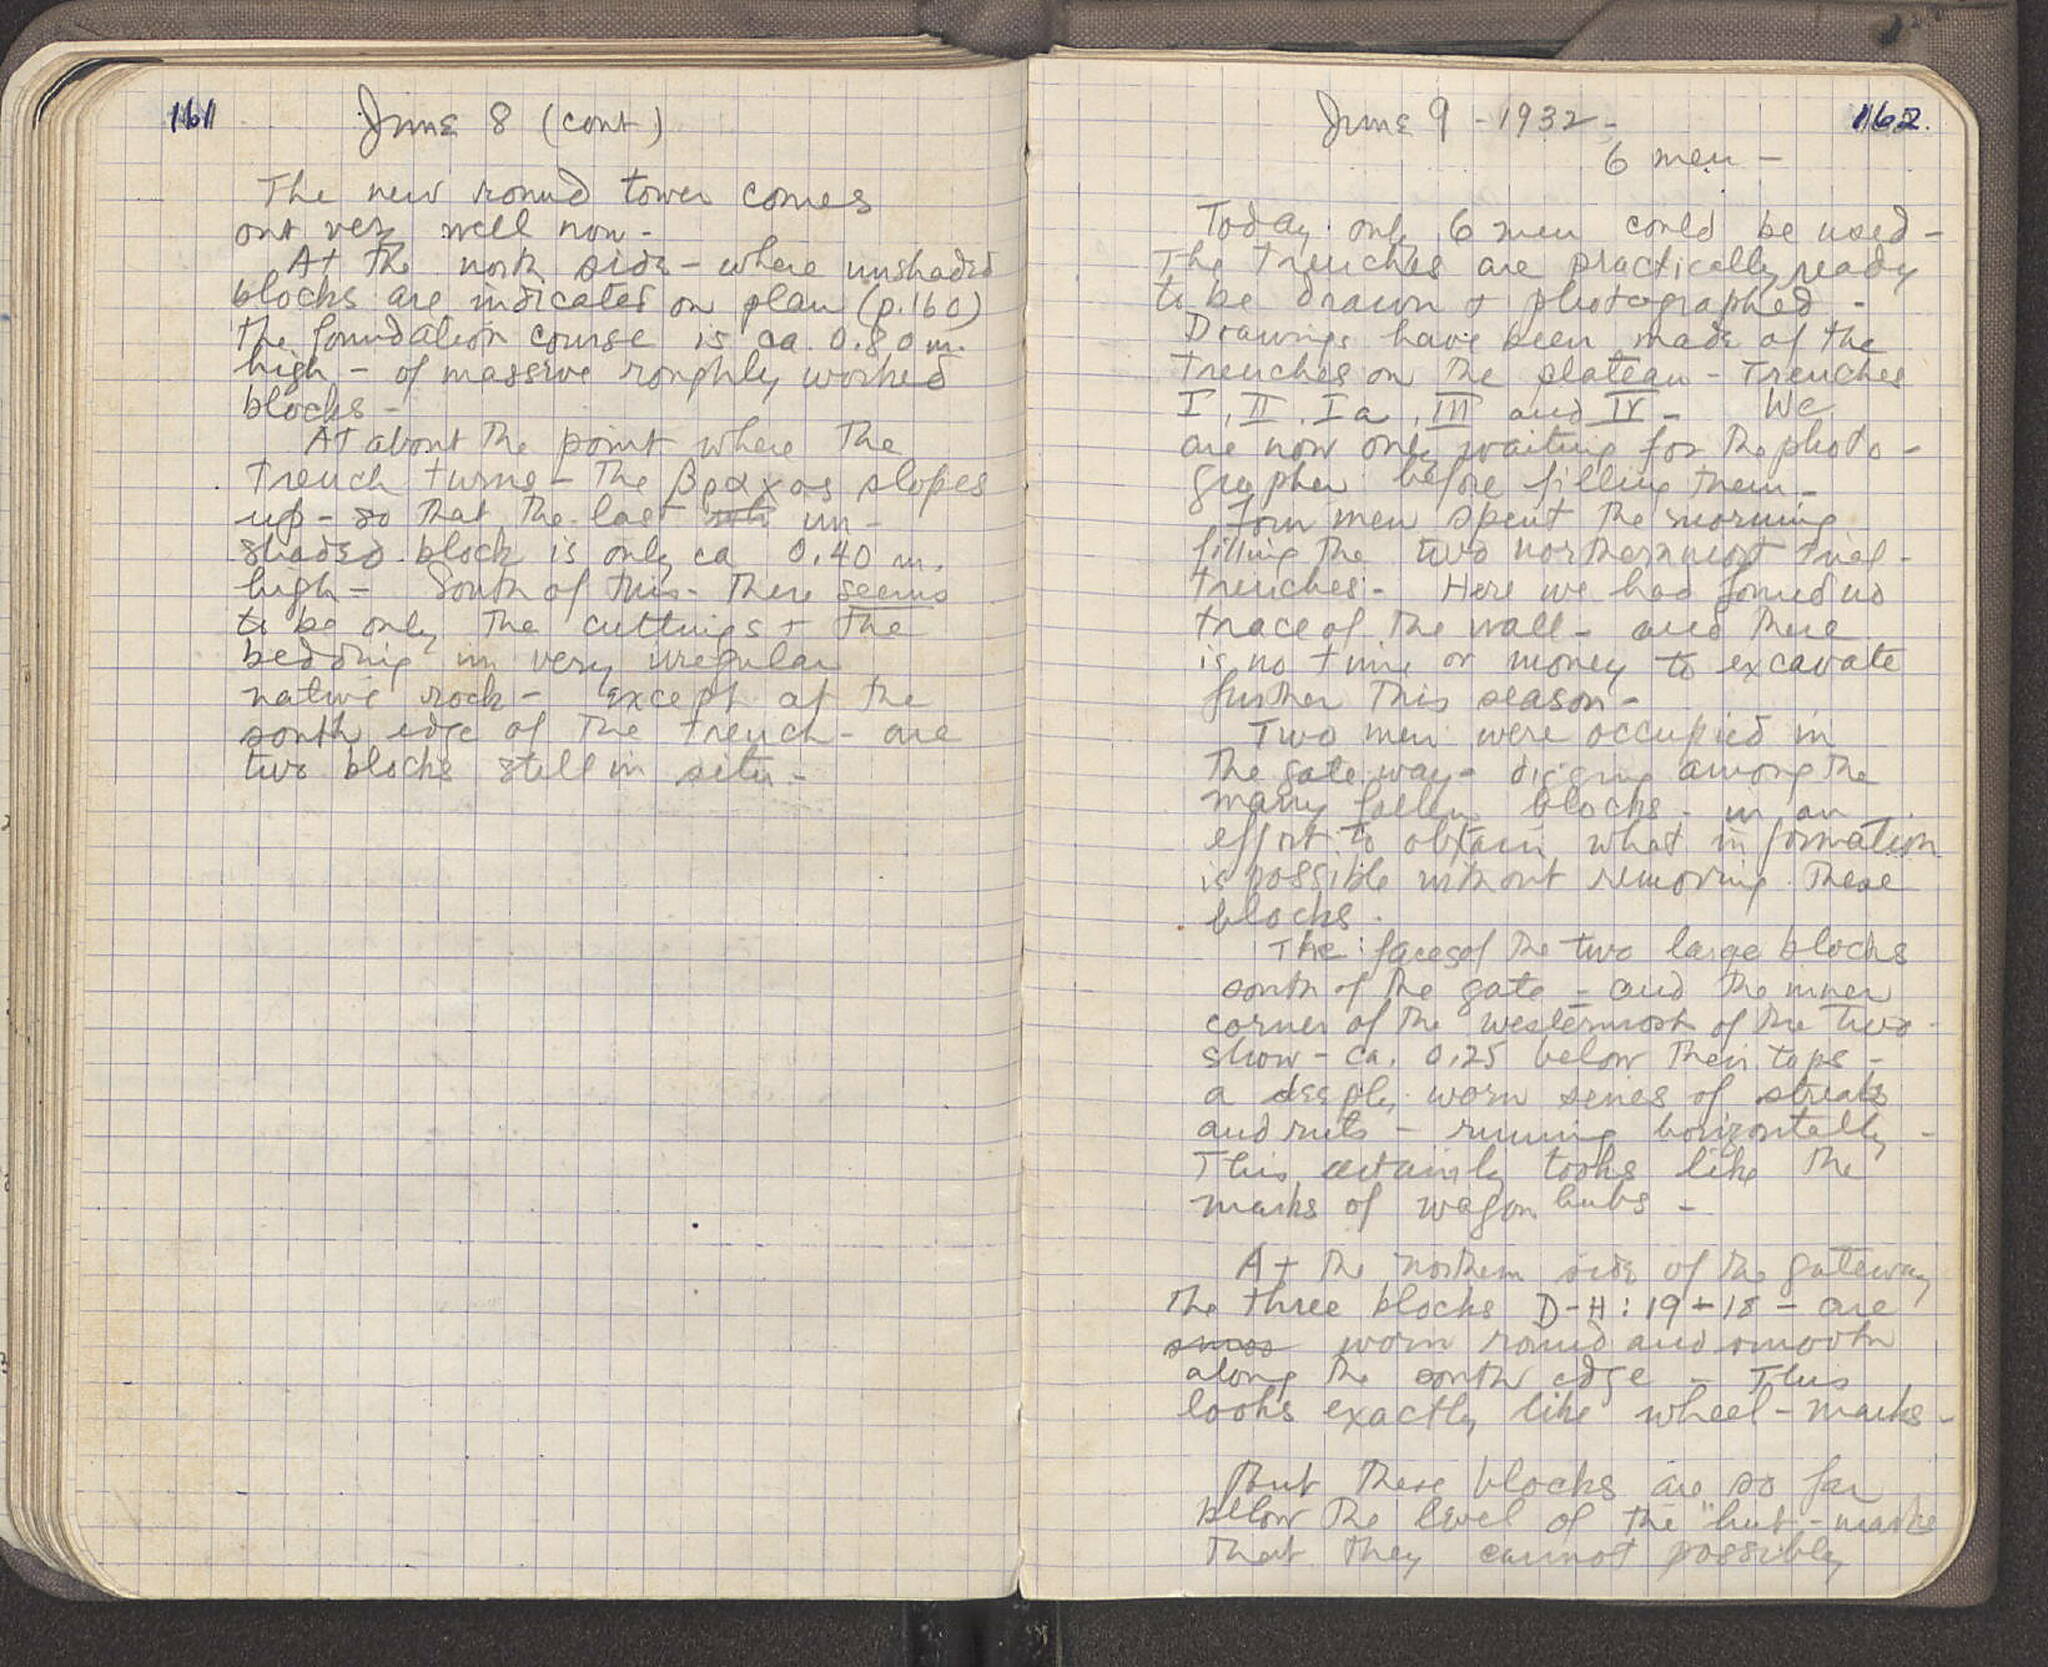 161
June 8 (cont)
The new round tower comes
out very well now -
At the north side - where unshaded
blocks are indicated on plan (p.160)
the foundation course is ca. 0.80 m.
high - of massive roughly worked
blocks -
At about the point where the
trench turns - the βραχος slopes
up - so that the last un-
shaded block is only ca 0.40 m.
high - South of this - there seems
to be only the cuttings + the
bedding in very irregular
native rock - except at the
south edge of the trench - are
two blocks still in situ -
162.
June 9 - 1932 -
6 men -
Today only 6 men could be used -
The trenches are practically ready
to be drawn + photographed -
Drawings have been made of the
trenches on the plateau - Trenches
I, II, Ia, III and IV - We
are now only waiting for the photo-
grapher before filling them -
Four men spent the morning
filling the two northernmost trial-
trenches - Here we had found no
trace of the wall - and there
is no time or money to excavate
further this season -
Two men were occupied in
the gateway - digging among the
many fallen blocks - in an
effort to obtain what information
is possible without removing these
blocks.
The faces of the two large blocks
south of the gate - and the inner
corner of the westernmost of the two -
show - ca. 0.25 below their tops -
a deeply worn series of streaks
and ruts - running horizontally -
This certainly looks like the
marks of wagon hubs -
At the northern side of the gateway
the three blocks D-H : 19 + 18 - are
worn round and smooth
along the south edge - This
looks exactly like wheel-marks -
But these blocks are so far
below the level of the "hub-marks
that they cannot possibly